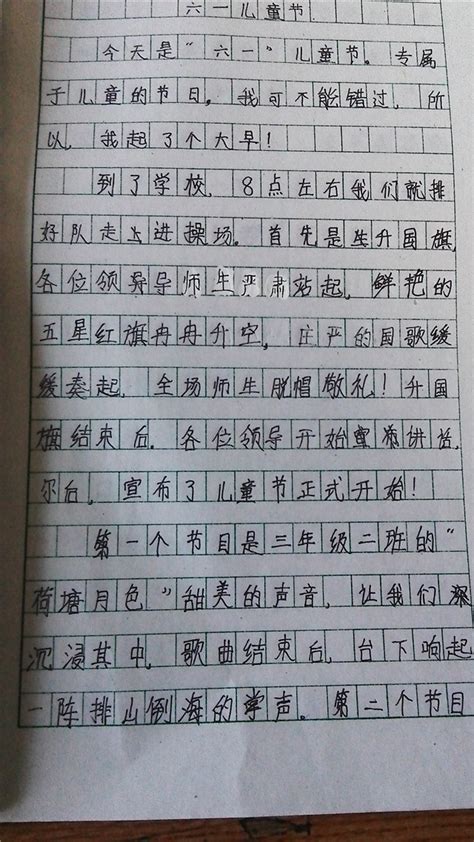 六一儿童节
今天是“六一”儿童节。专属
于儿童的节日。我可不能错过,所
以,我起了个大早!
到了学校,8点左右我们就排
好队走上进操场。首先是升国旗,
各位领导导师生严肃站起,鲜艳的
五星红旗冉冉升空,庄严的国歌缓
缓奏起,全场师生脱帽敬礼!升国
旗结束后.各位领导开始讲话,
尔后,宣布了儿童节正式开始!
第一个节目是三年级二班的“
荷塘月色”甜美的声音,让我们深
沉浸其中,歌曲结束后,台下响起
一阵排山倒海的掌声。第二个节目